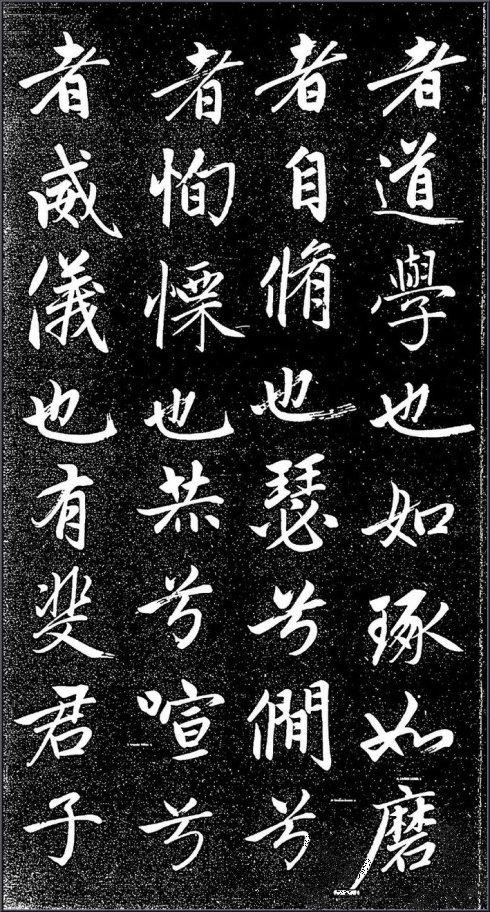 者道學也如琢如磨
者自脩也瑟兮僩兮
者恂慄也赫兮喧兮
者威儀也有斐君子